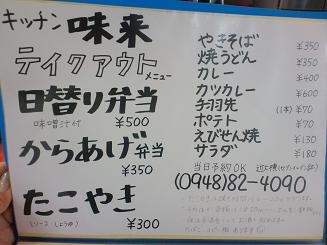 キッチン 味来
テイクアウト メニュー
日替り弁当
味噌汁付 ¥500
からあげ弁当
¥350
たこやき
(ソース・しょうゆ) ¥300
やきそば ¥350
焼うどん ¥350
カレー ¥400
カツカレー ¥600
手羽先 (1本) ¥70
ポテト ¥70
えびせん焼 ¥130
サラダ ¥180
当日予約OK
(0948)82-4090